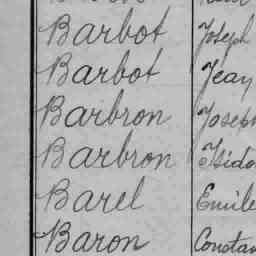 Barbot Joseph
Barbot Jean
Barbron Joseph
Barbron Isido
Barel Emile
Baron Constan